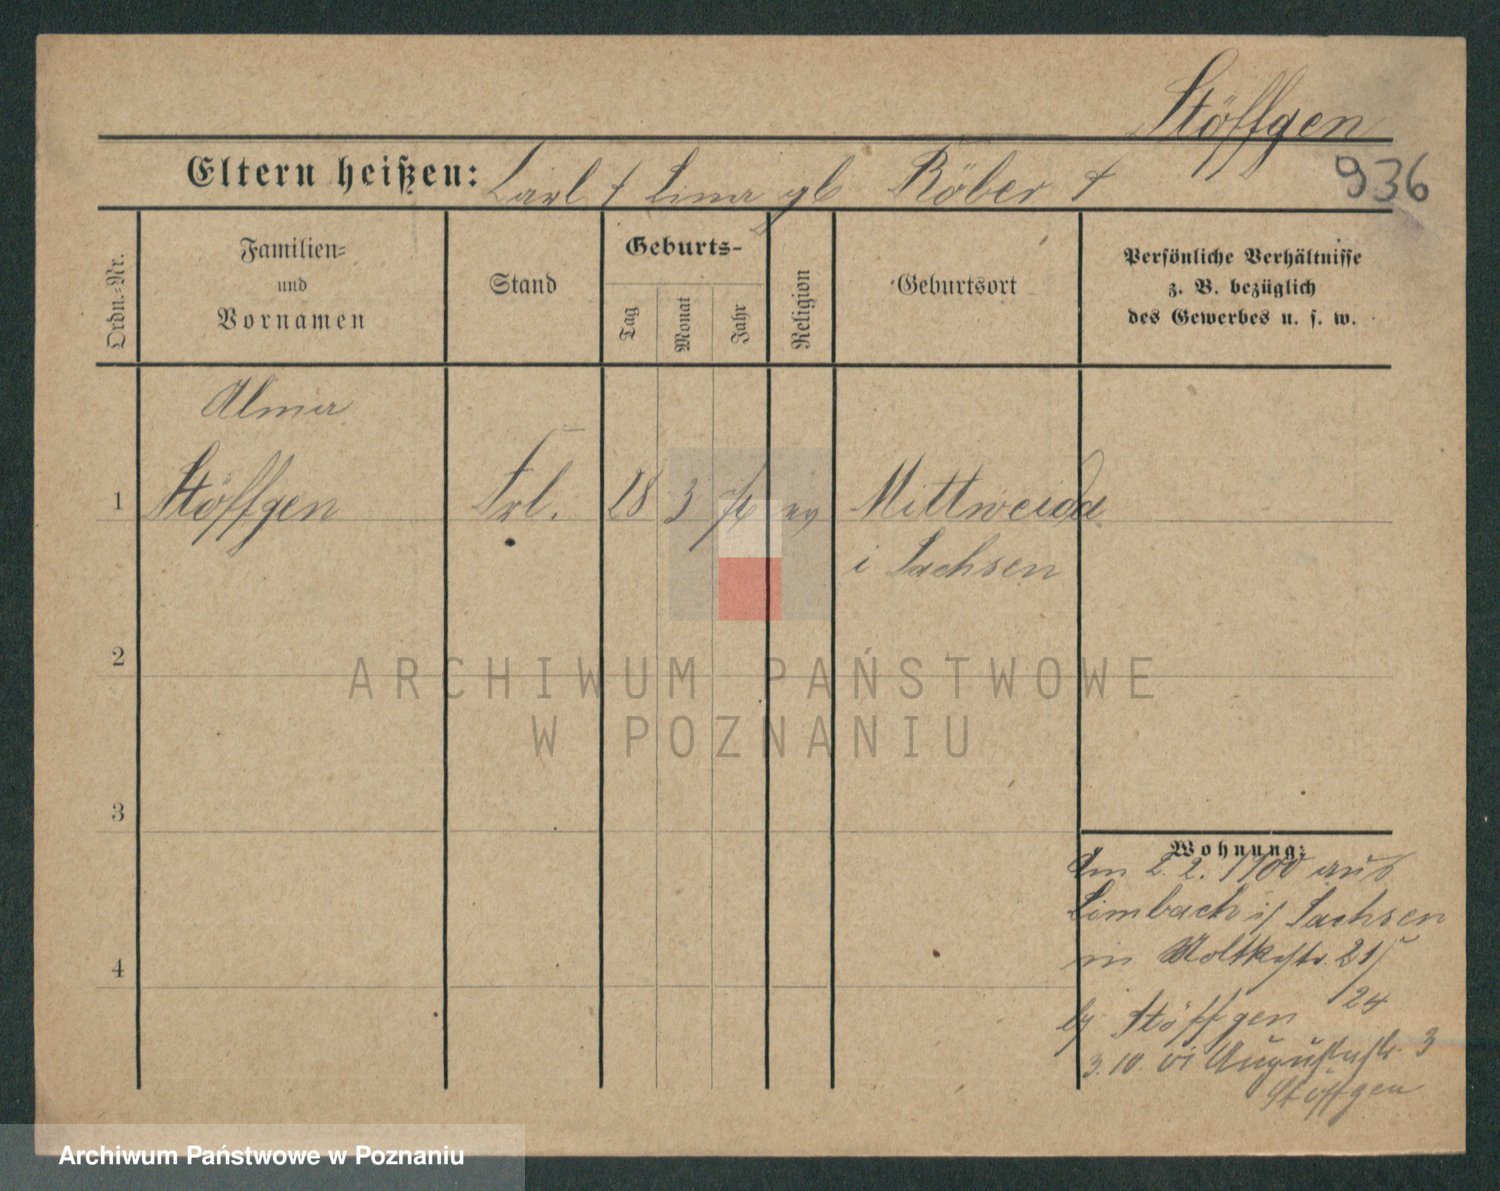 Stöffgen
936
Eltern heißen: Carl † Lina gb Röber †
Ordn.=Nr.
Familien=
und
Vornamen
Stand
Geburts-
Tag
Monat
Jahr
Religion
Geburtsort
Persönliche Verhältnisse
z. B. bezüglich
des Gewerbes u. s. w.
Alma
1 Stöffgen Frl. 28 3 ev Mittweida
i Sachsen
2
ARCHIWUM PAŃSTWOWE
W POZNANIU
3
Wohnung:
Am 2. 2. 1900 aus
Limbach i/ Sachsen
in Moltkestr. 21/
24
bj Stöffgen
3. 10. 01 Augustastr. 3
Stöffgen
4
Archiwum Państwowe w Poznaniu